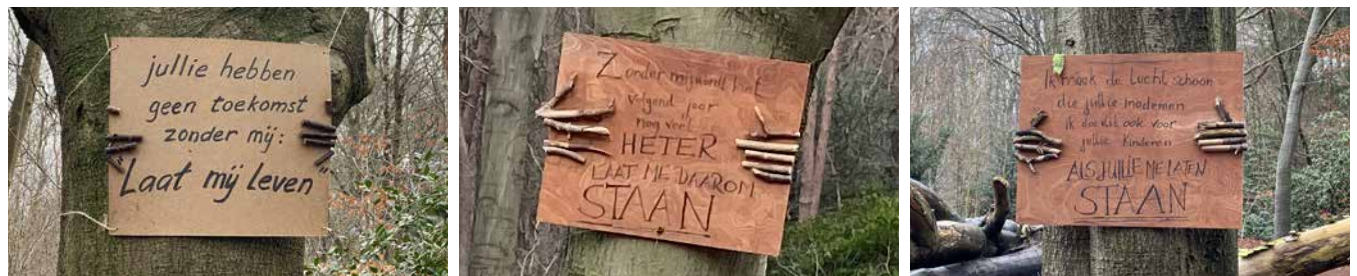 jullie hebben
geen toekomst
zonder mij:
"Laat mij leven"
Zonder mij wordt het
volgend jaar
nog veel
HETER
LAAT ME DAAROM
STAAN
Ik maak de lucht schoon
die jullie inademen
ik doe dit ook voor
jullie kinderen
ALS JULLIE ME LATEN
STAAN